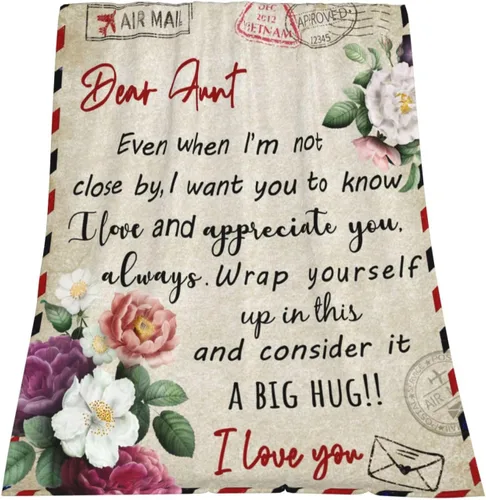 AIR MAIL
DEC
2012
VIETNAM
APPROVED
12345
Dear Aunt
Even when I'm not
close by, I want you to know
I love and appreciate you,
always. Wrap yourself
up in this
and consider it
A BIG HUG!!
AIR
I love you